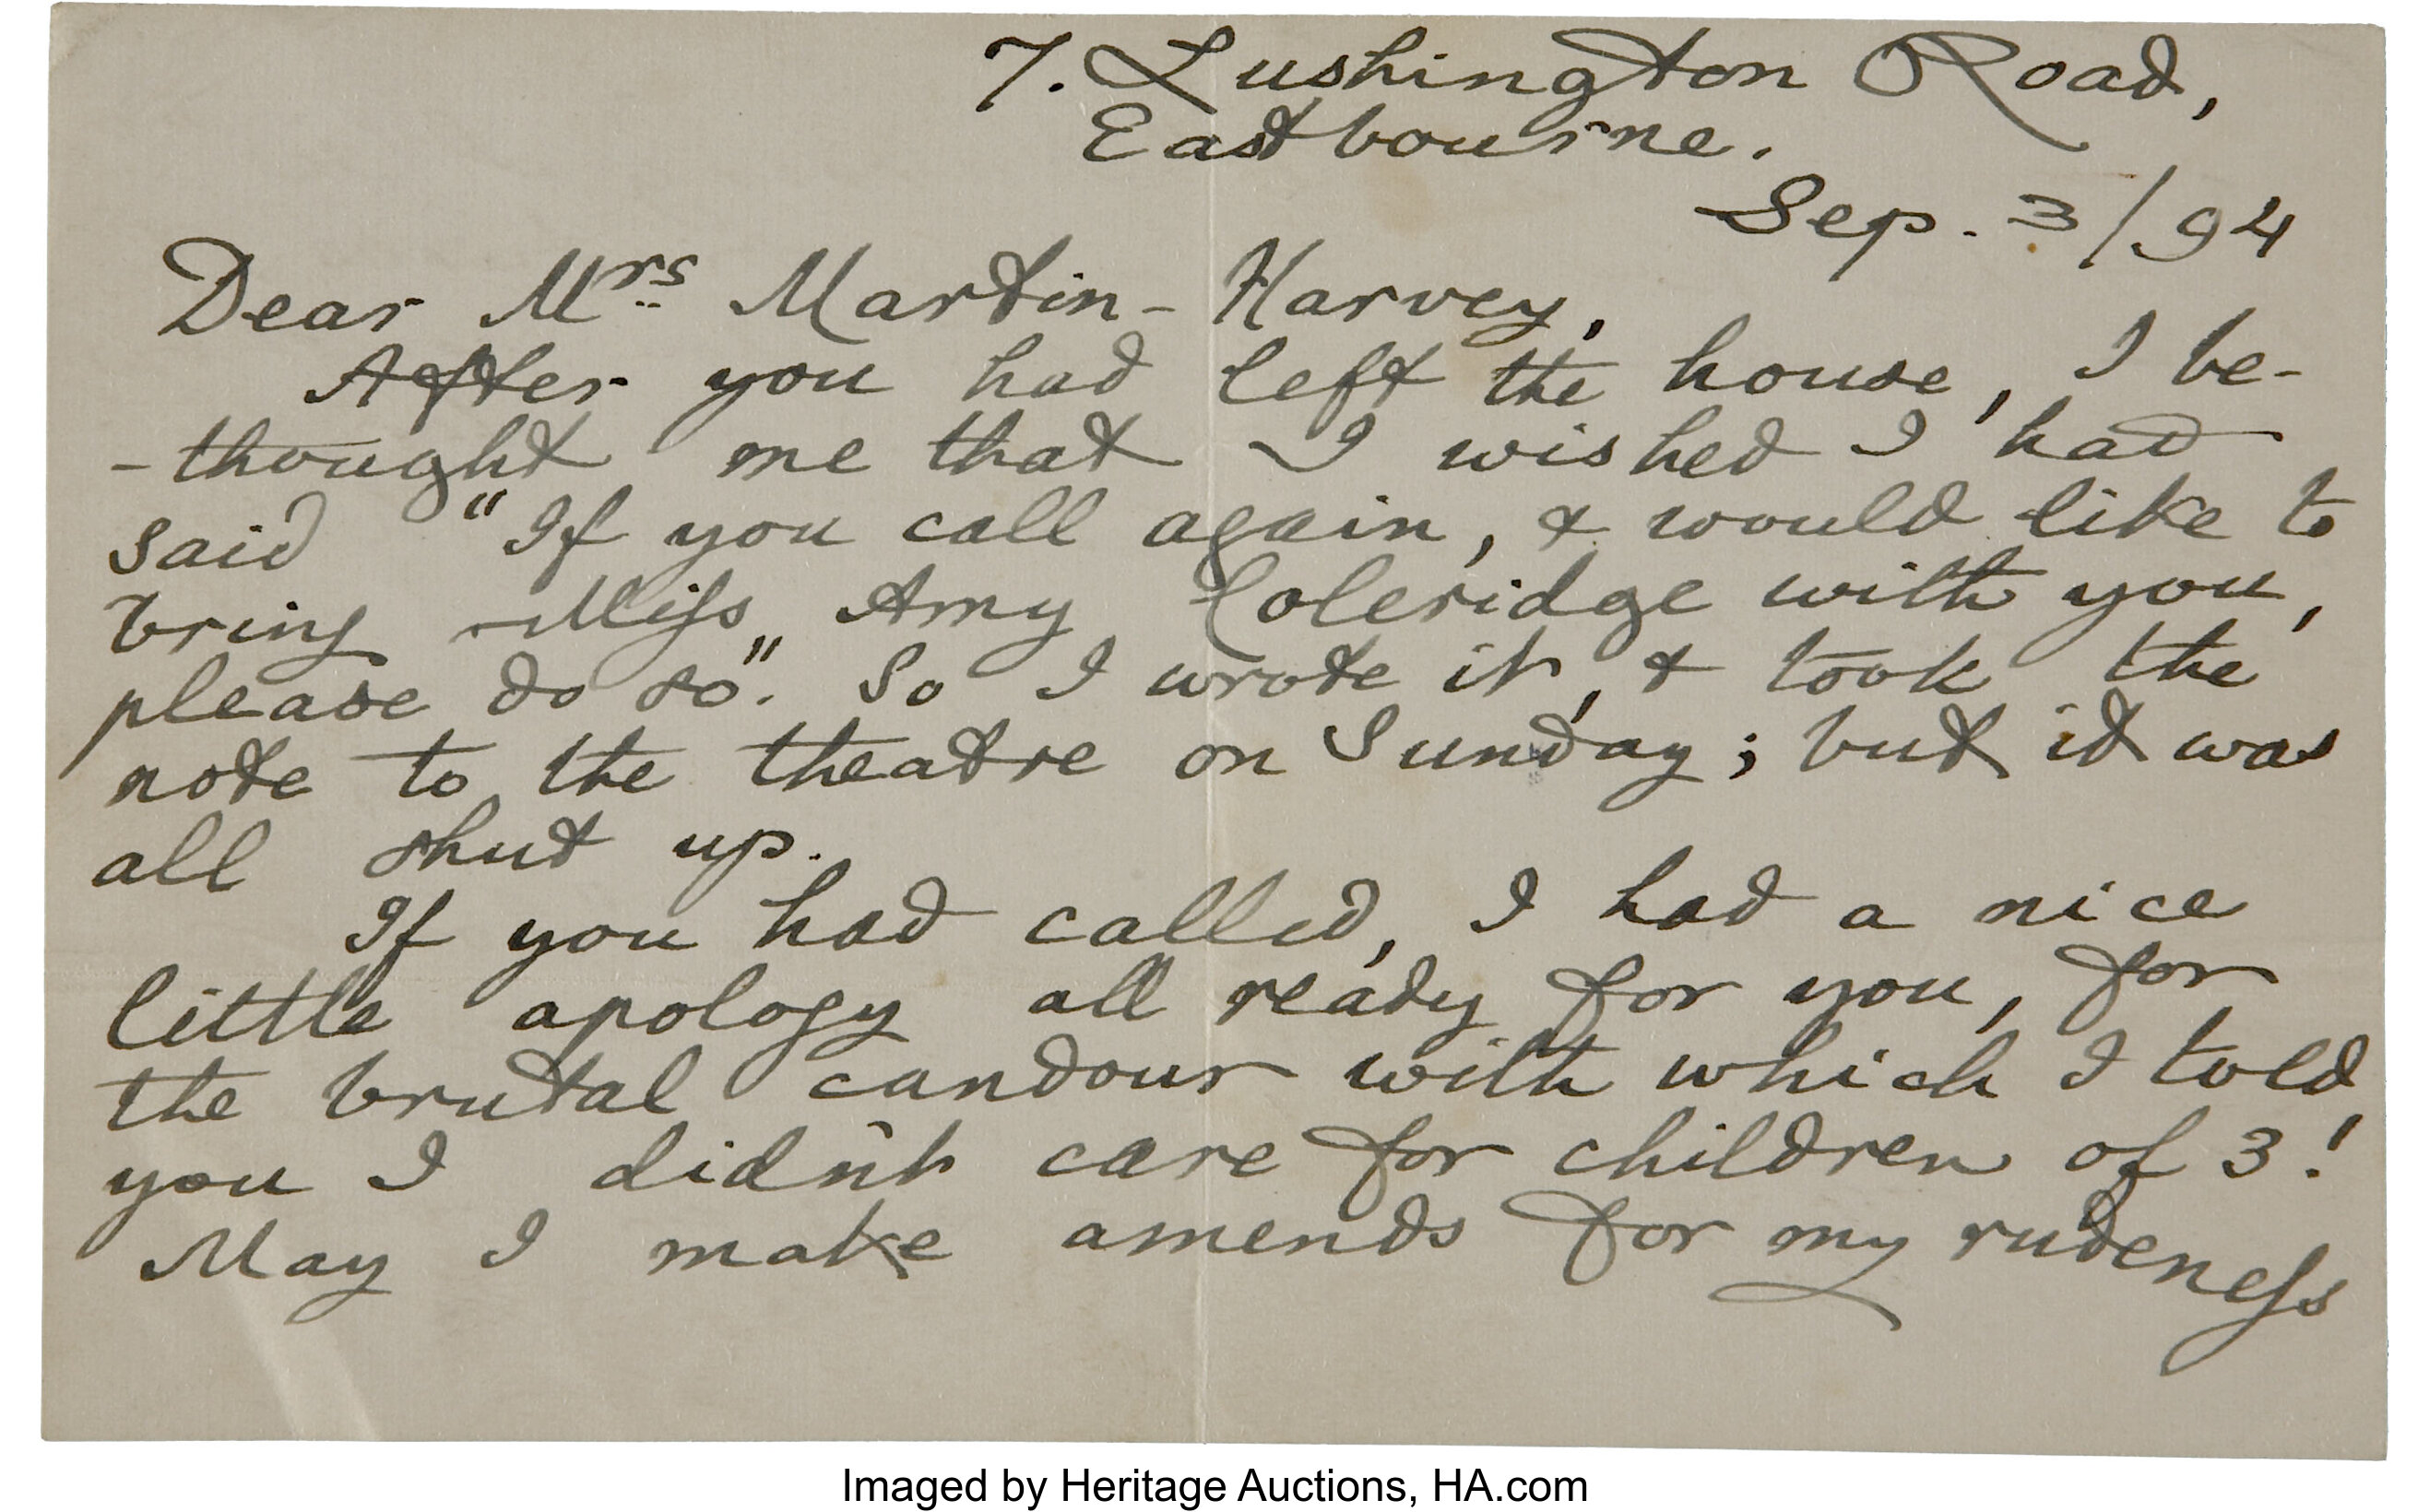 7. Lushington Road,
Eastbourne.
Sep. 3/94
Dear Mrs Martin-Harvey,
After you had left the house, I be-
-thought me that I wished I had
said "If you call again, & would like to
bring Miss Amy Coleridge with you,
please do so". So I wrote it, & took the
note to the theatre on Sunday; but it was
all shut up.
If you had called, I had a nice
little apology all ready for you, for
the brutal candour with which I told
you I didn't care for children of 3!
May I make amends for my rudeness
Imaged by Heritage Auctions, HA.com